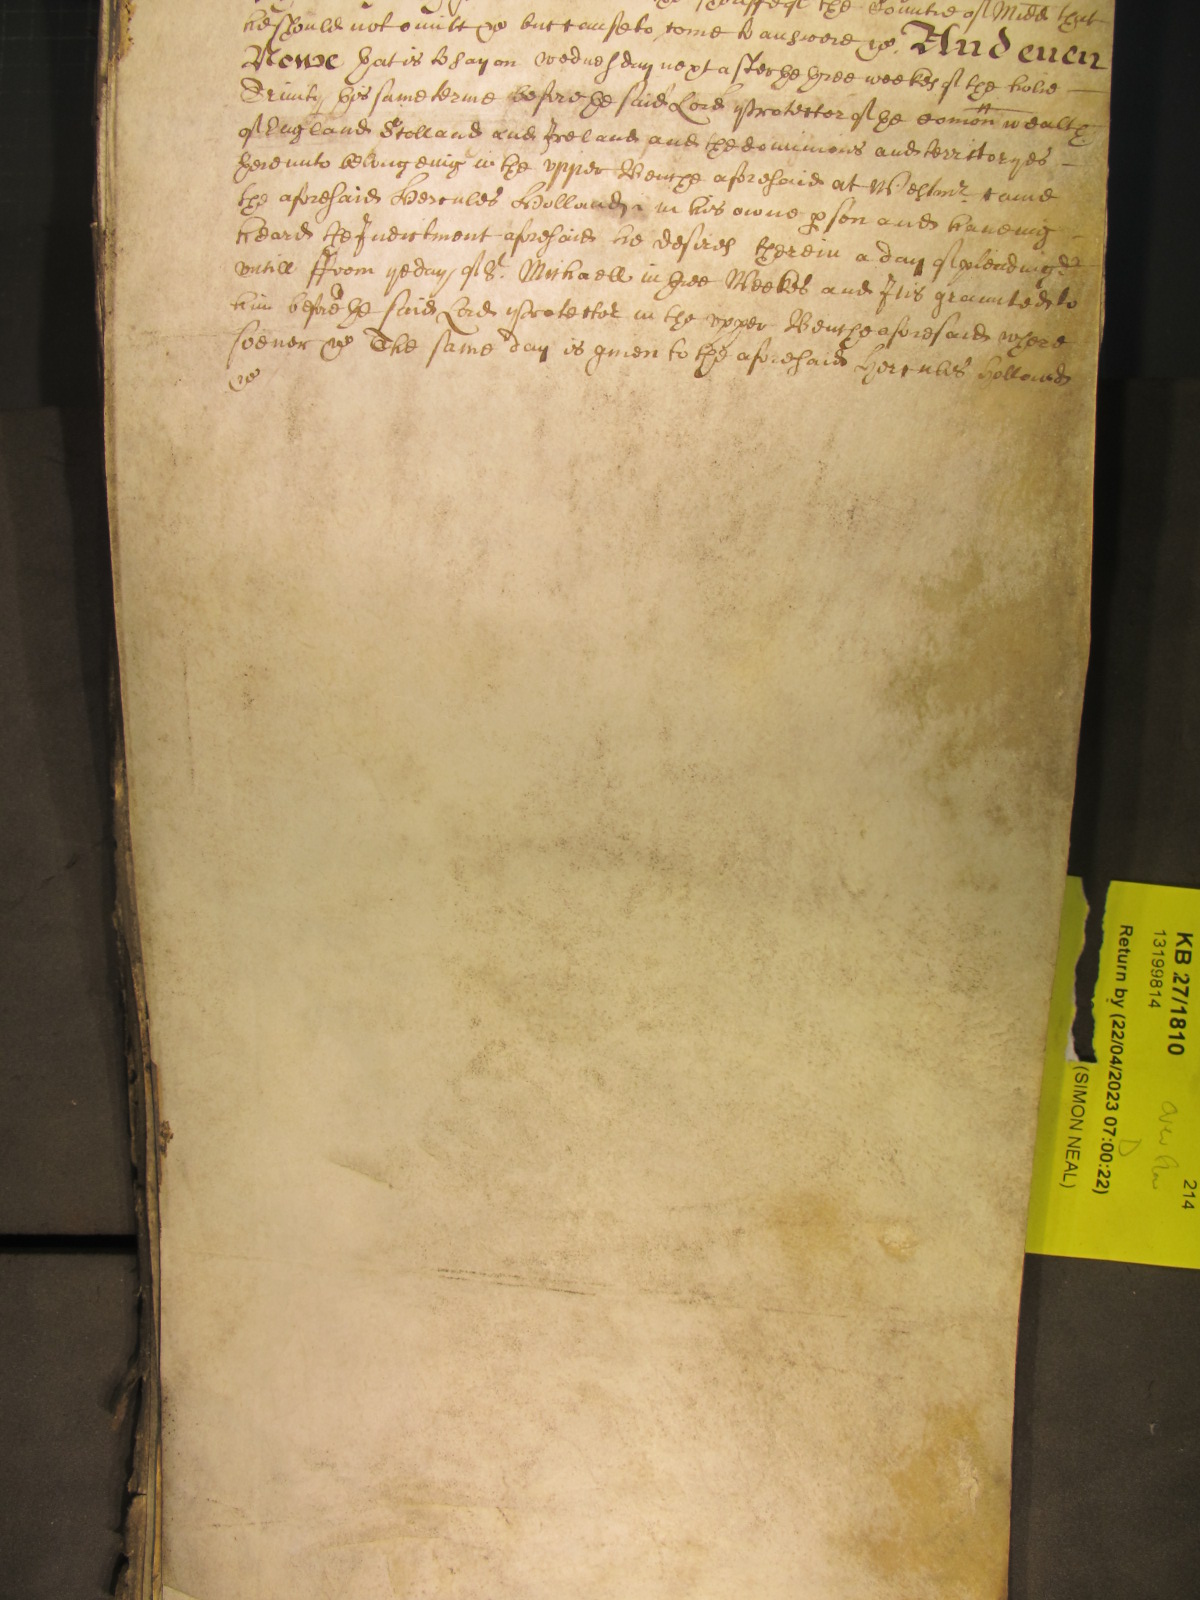 the Sheriffe of the Countie of Midd that
he should not omitt &c but cause to come to answere &c. And euen
Nowe that is to say on wednesday next after three weekes of the holie
Trinity this same terme before the said Lord Protector of the Comon wealth
of England Scotland and Ireland and the dominions and territoryes
thereunto belonging in the vpper Benche aforesaid at Westmr came
the aforesaid Hercules Holland in his owne pson and haueing
heard the Indictment aforesaid he desires therein a day of pleading &c
vntill ffrom ye day of St. Michaell in three Weekes and It is graunted to
him before the said Lord Protector in the vpper Benche aforesaid where
soeuer &c The same day is giuen to the aforesaid Hercules Holland
&c
KB 27/1810
13199814
214
Return by (22/04/2023 07:00:22)
(SIMON NEAL)